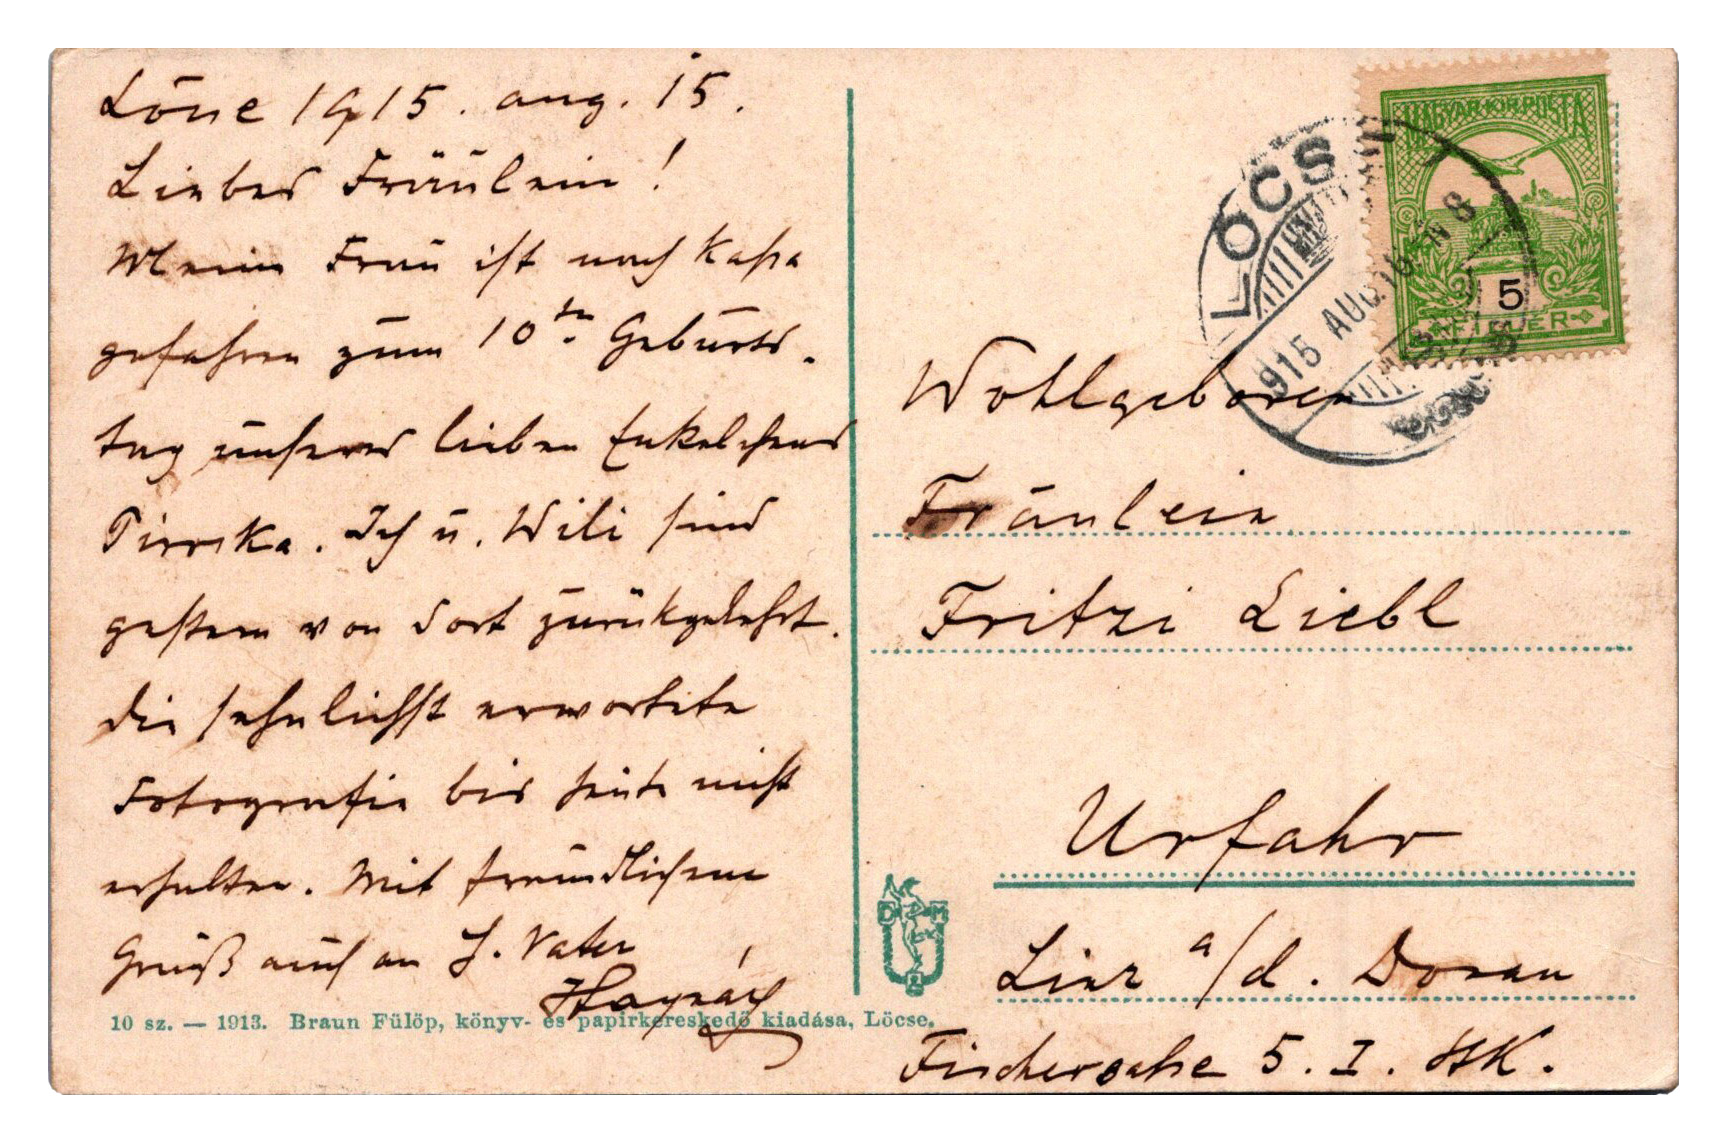 Löcse 1915. aug. 15.
Liebes Fräulein!
Meine Frau ist nach Kassa
gefahren zum 10ten Geburts-
tag unseres lieben Enkelchens
Piroska. Ich u. Wili sind
gestern von dort zurückgekehrt.
Die sehnlichst erwartete
Fotografie bis heute nicht
erhalten. Mit freundlichem
Gruß auch an H. Vater
10 sz. — 1913. Braun Fülöp, könyv- és papirkereskedő kiadása, Löcse.
MAGYAR·KIR·POSTA
5
FILLÉR
LŐCS
915 AUG. 16. N 8
Wohlgeboren
Fräulein
Fritzi Liebl
Urfahr
Linz a/d. Donau
Fischergasse 5. I. StK.
D M